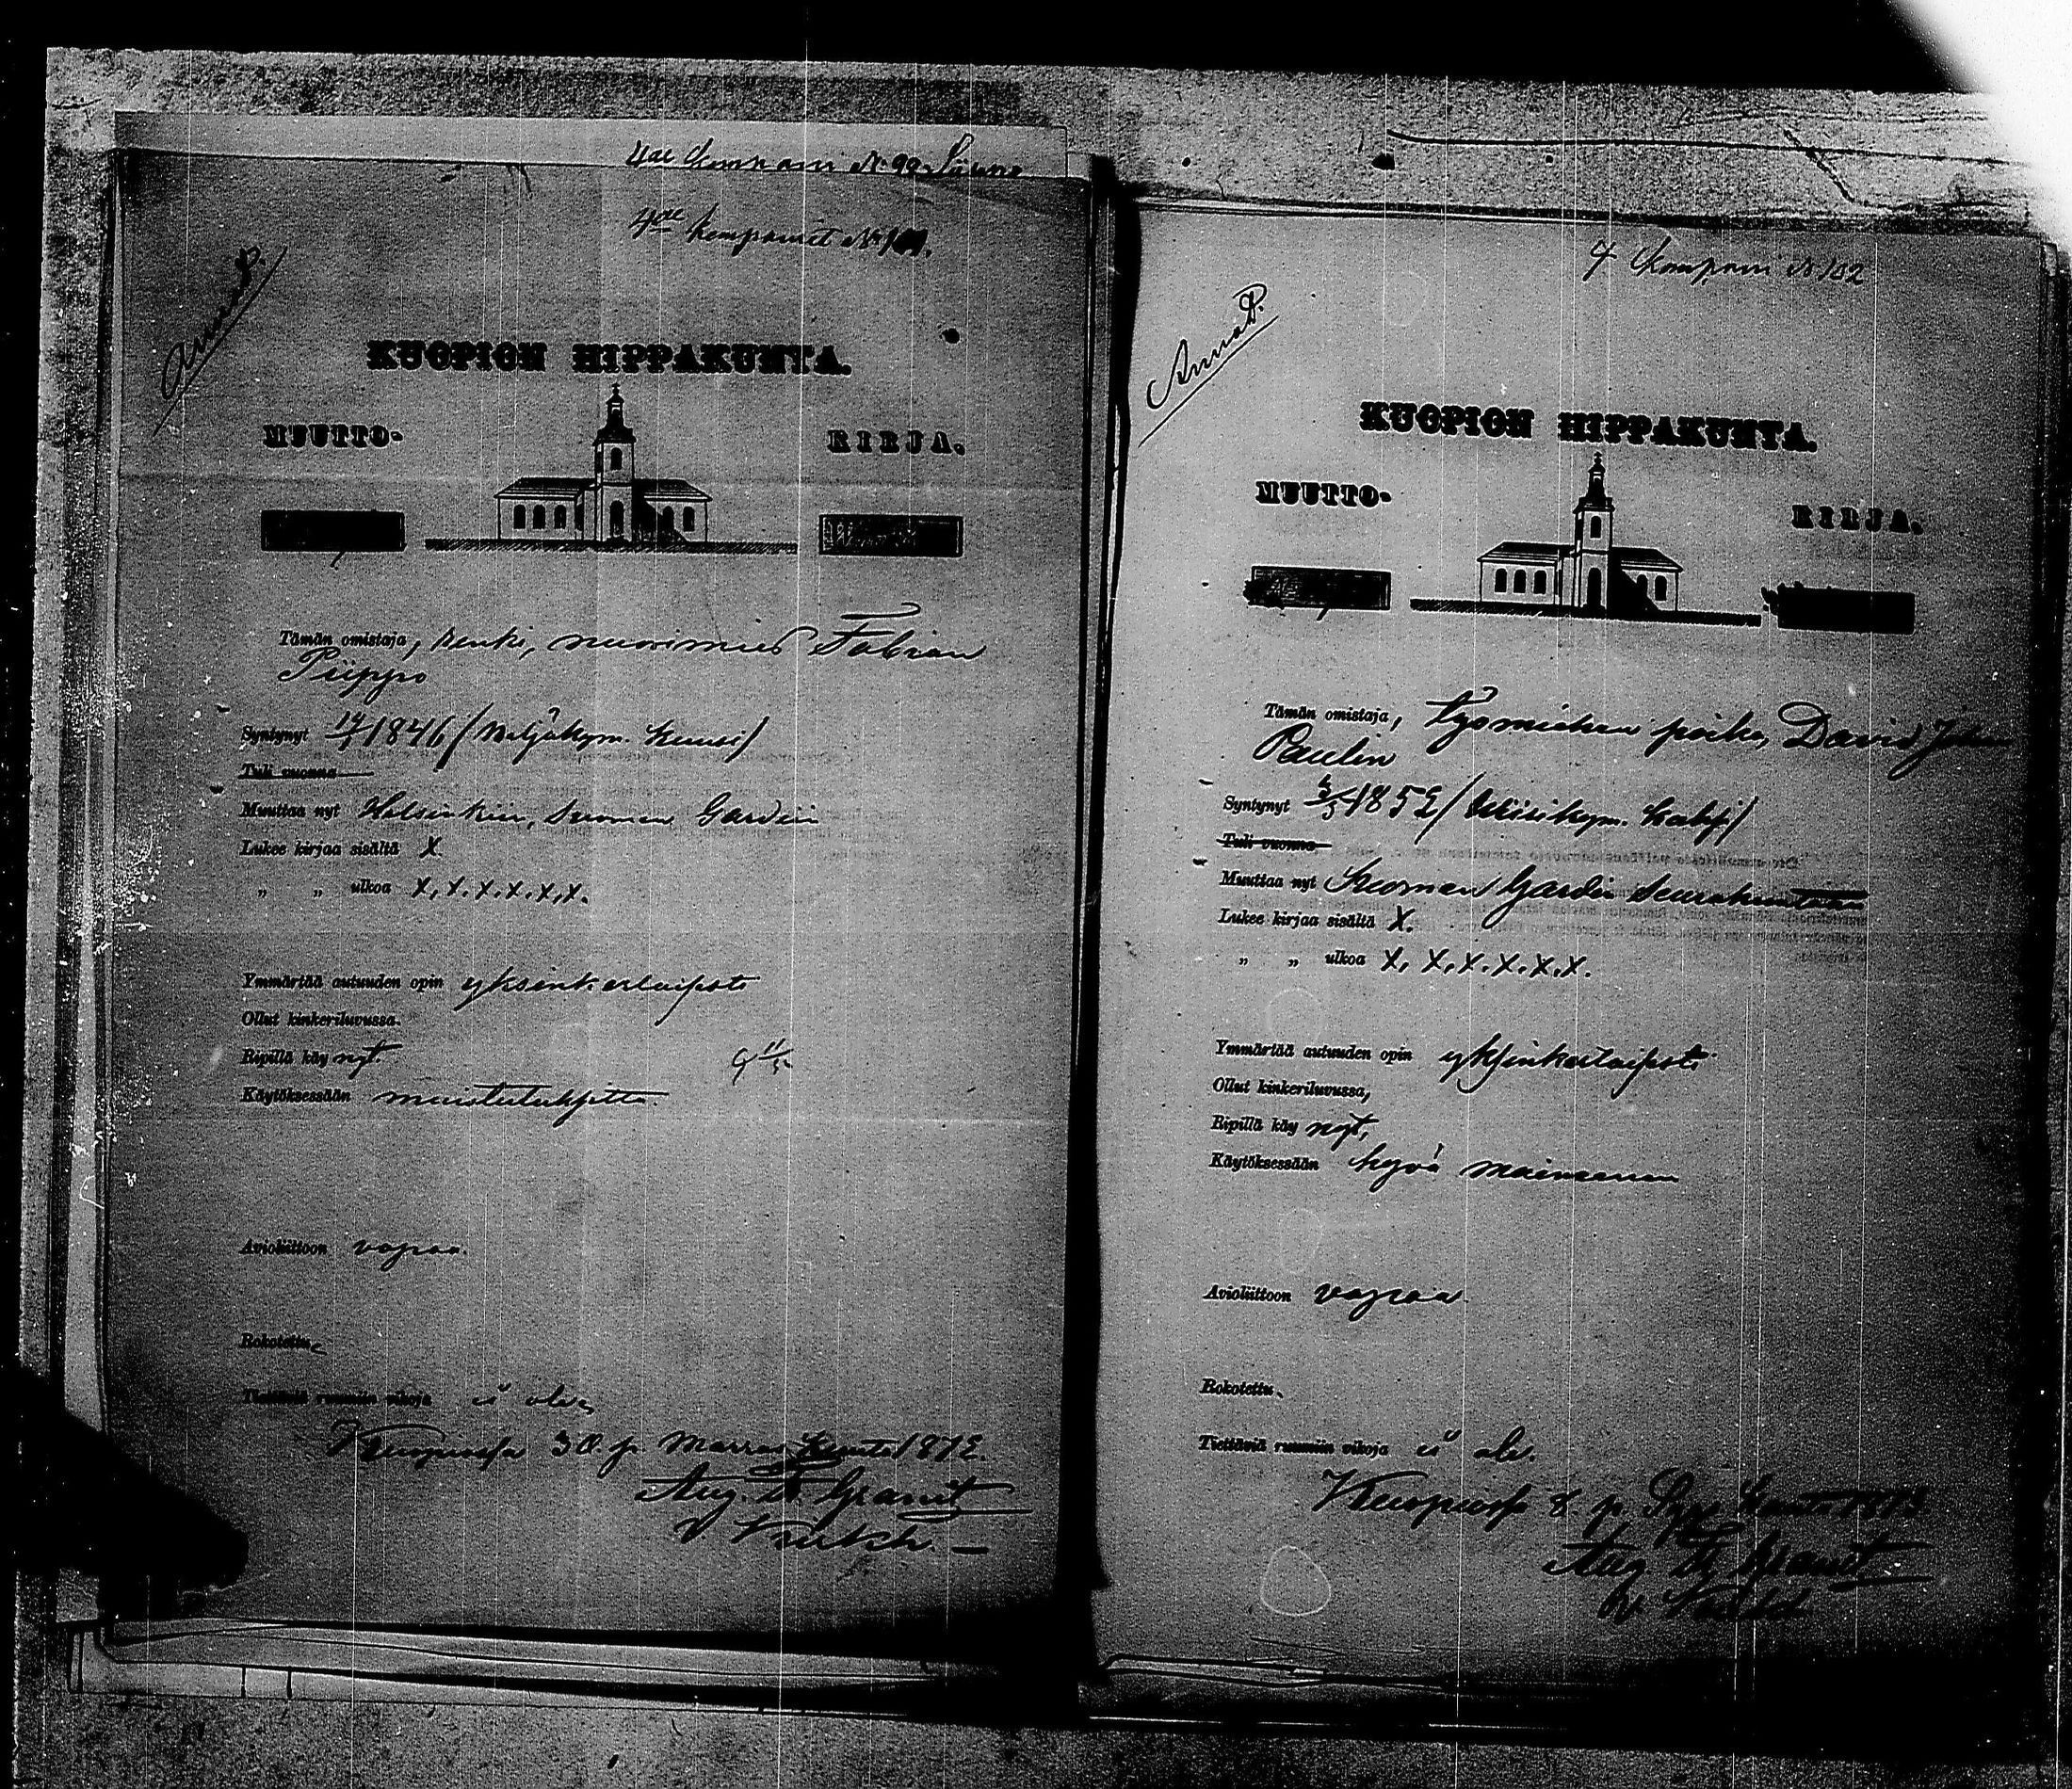 4de Kompani No 99
4de Kompaniet No
KUOPION HIPPAKUNTA.
MUUTTO- KIRJA.
Tämän omistaja, Renki, nuorimies Fabian
Piippo
Syntynyt 1846 / Neljäkym. kuusi /
Tuli vuonna
Muuttaa nyt Helsinkiin, Suomen Gardiin
Lukee kirjaa sisältä X.
„ „ ulkoa X, X. X. X. X. X.
Ymmärtää autuuden opin yksinkertaisesti
Ollut kinkeriluvussa.
Ripillä käy nyt
Käytöksessään muistutuksetta.
Avioliittoon vapaa.
Rokotettu
Tiettäviä ruumiin vikoja ei ole,
Kuopiossa 30 p. Marraskuuta 1872.
Aug. Granit
4 Kompani No 102
KUOPION HIPPAKUNTA.
MUUTTO- KIRJA.
Tämän omistaja, Työmiehen poika, David Johan
Paulin
Syntynyt 1852 / Wiisikym. kaksi /
Tuli vuonna
Muuttaa nyt Suomen Gardin Seurakuntaan
Lukee kirjaa sisältä X.
„ „ ulkoa X, X. X. X. X. X.
Ymmärtää autuuden opin yksinkertaisesti
Ollut kinkeriluvussa,
Ripillä käy nyt,
Käytöksessään hyvä maineinen
Avioliittoon vapaa.
Rokotettu.
Tiettäviä ruumiin vikoja ei ole.
Kuopiossa 8 p. Syyskuuta 1873
Aug. Granit